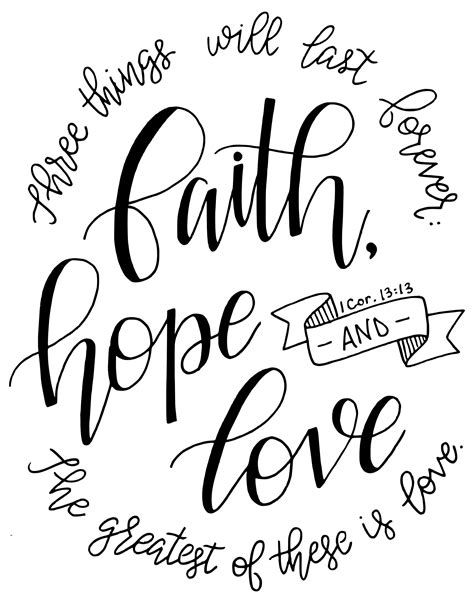 Three things will last forever:
faith,
hope
1 Cor. 13:13
- AND -
love
The greatest of these is love.